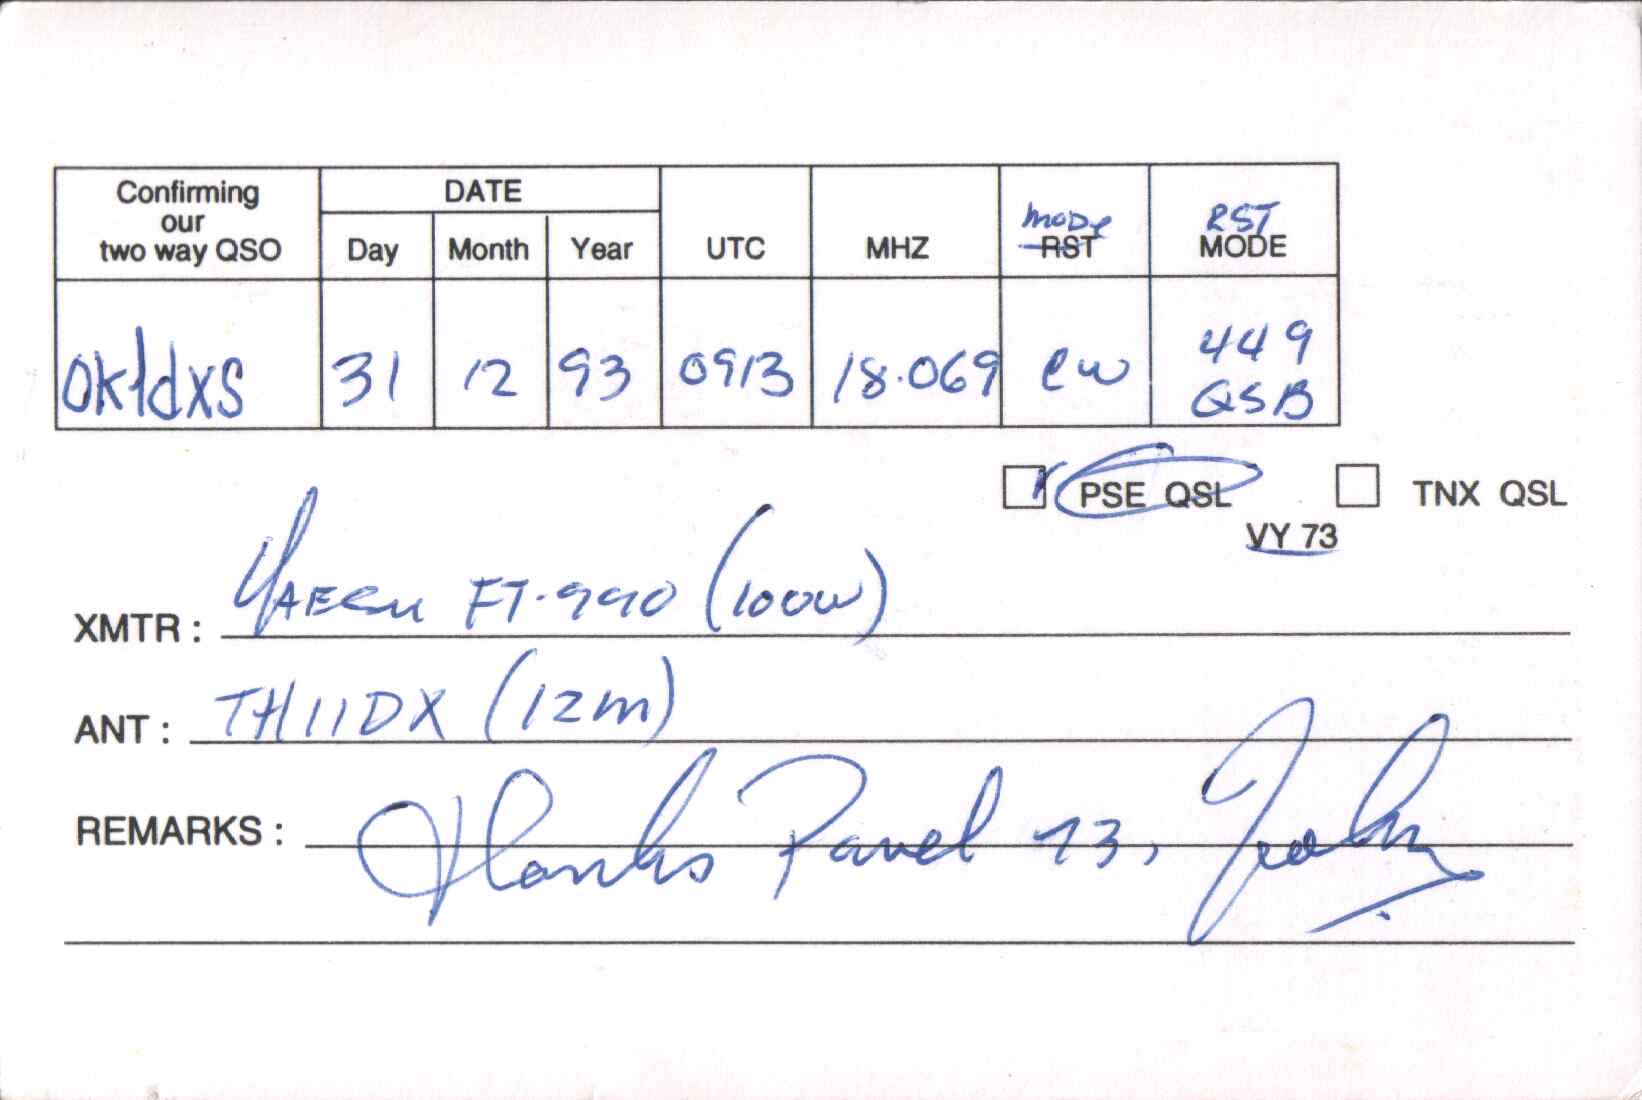 Confirming our two way QSO
DATE
Day Month Year UTC MHZ mode RST RST MODE
OK1dxs 31 12 93 0913 18.069 cw 449 QSB
PSE QSL TNX QSL
VY 73
XMTR : YAESU FT-990 (100W)
ANT : TH11DX (12m)
REMARKS : Thanks Pavel 73, John